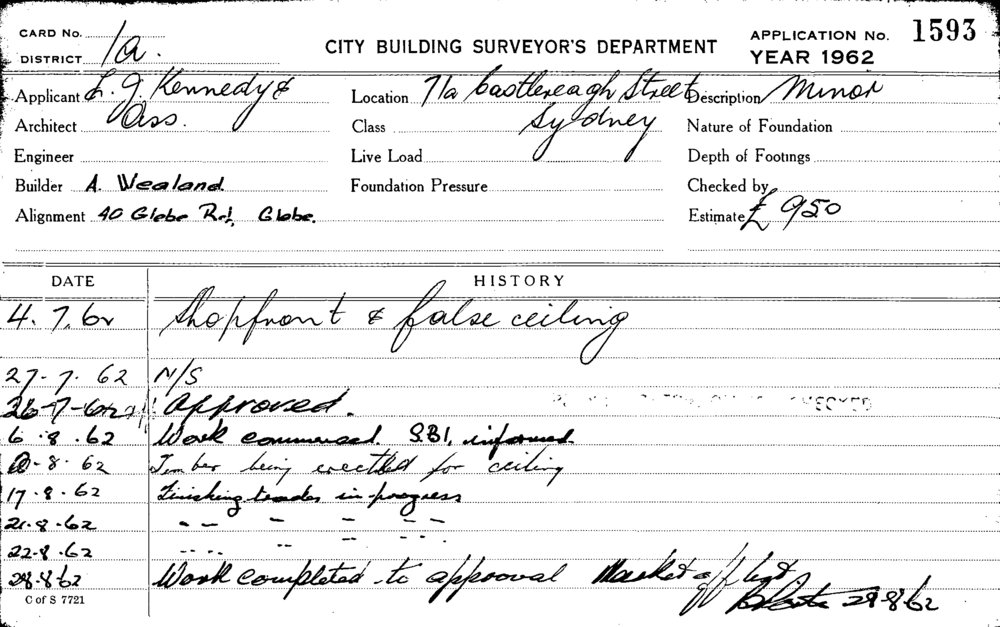 CARD No.
DISTRICT 1a.
CITY BUILDING SURVEYOR'S DEPARTMENT
APPLICATION No. 1593
YEAR 1962
Applicant L. J. Kennedy &
Architect Ass.
Engineer
Builder A. Wealand
Alignment 40 Glebe Rd, Glebe.
Location 71a Castlereagh Street
Class Sydney
Live Load
Foundation Pressure
Description Minor
Nature of Foundation
Depth of Footings
Checked by
Estimate £ 950
DATE HISTORY
4.7.62 Shopfront & false ceiling
27-7.62 N/S
26-7-62 Approved. CHECKED
6.8.62 Work commenced. S.B.I. informed.
8.62 Timber being erected for ceiling
17.8.62 Finishing trades in progress
21.8.62 -- - - --
22.8.62 ---- -- -- ---
28.8.62 Work completed to approval Marked off list
28-8-62
C of S 7721